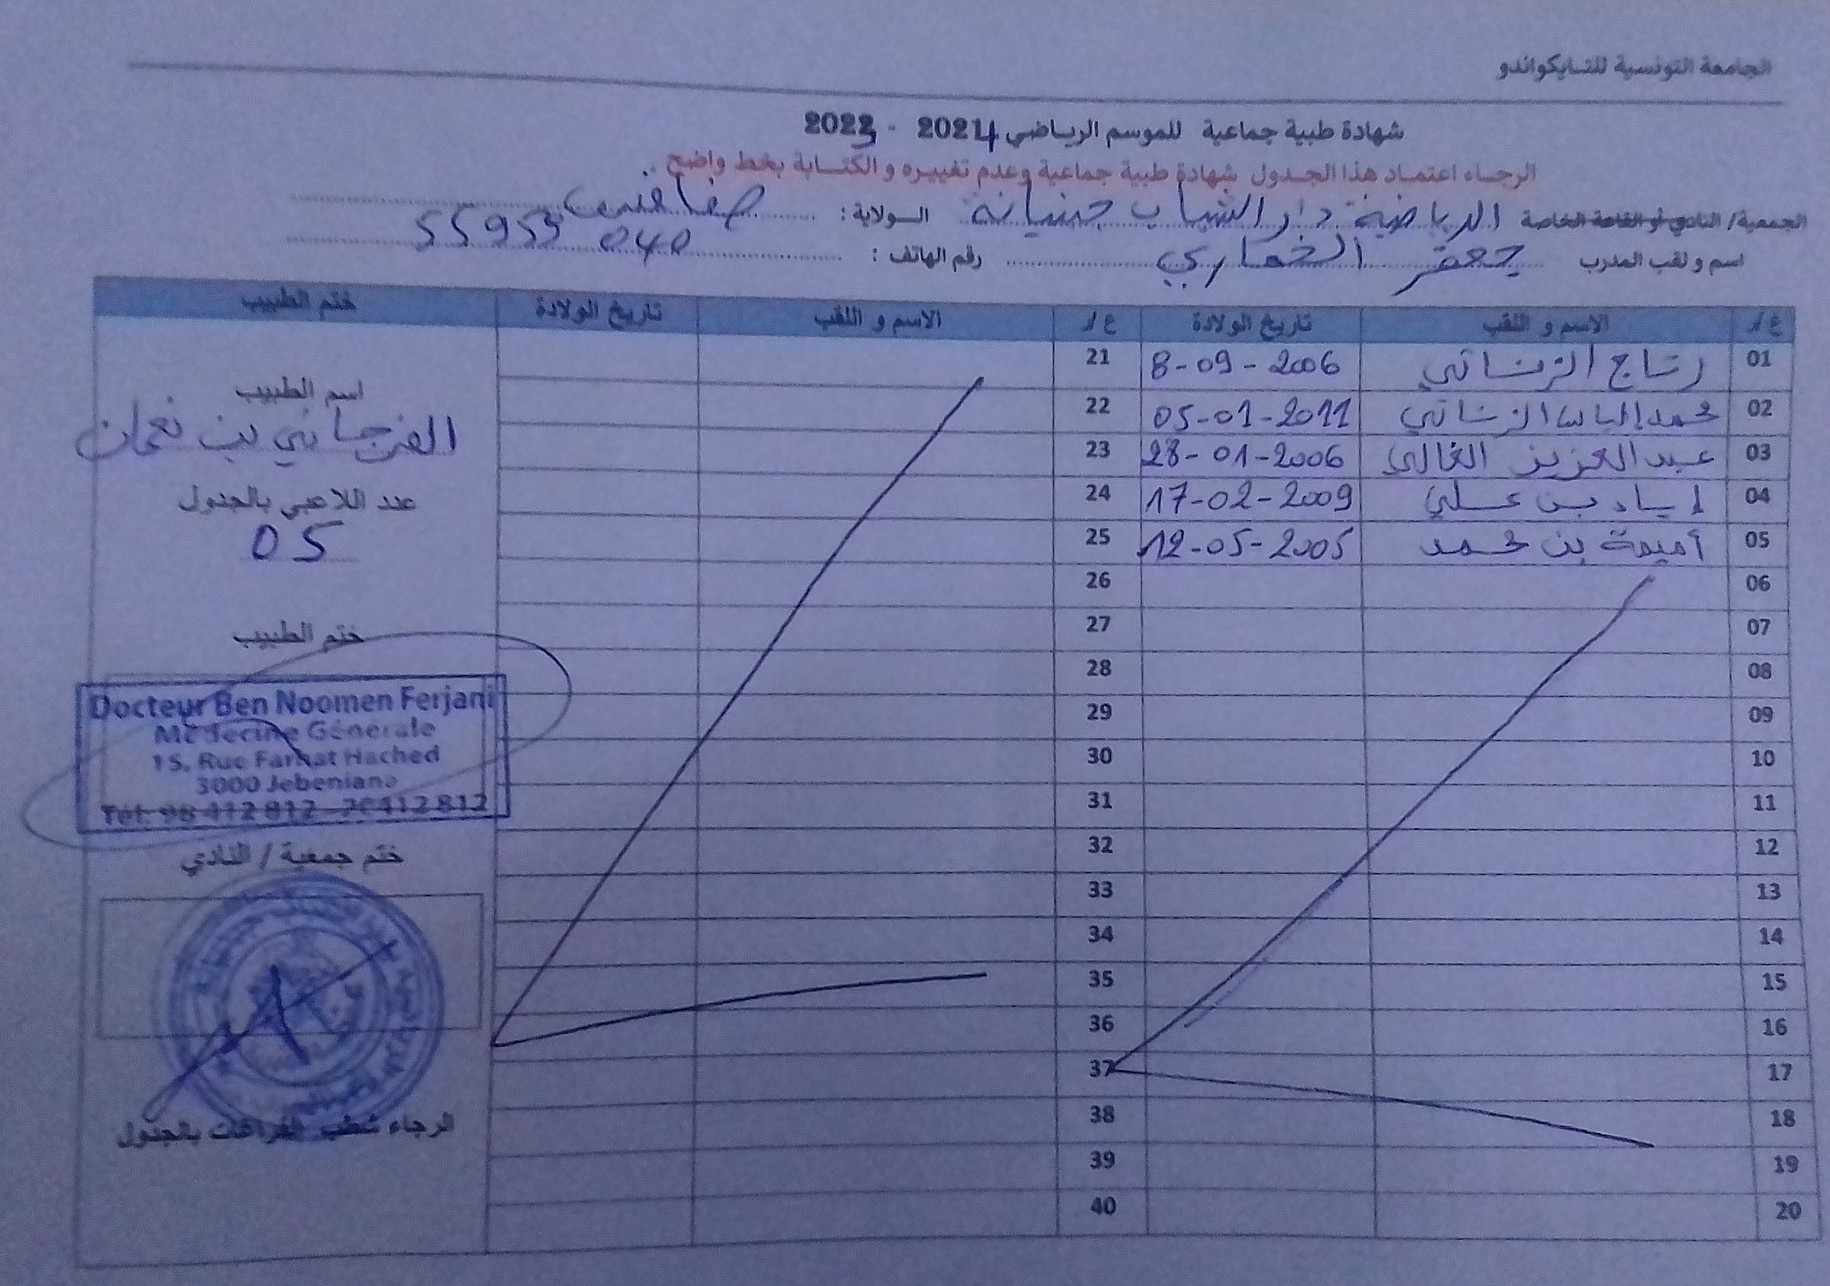 الجامعة التونسية للتايكواندو
شهادة طبية جماعية للموسم الرياضي 2024 - 2023
الرجاء اعتماد هذا الجدول شهادة طبية جماعية وعدم تغييره و الكتابة بخط واضح .
الجمعية/ النادي أو القاعة الخاصة الرياضية دار الشباب جبنيانة الولاية : صفاقس
اسم و لقب المدرب جعفر الخماري رقم الهاتف : 55953 040
ع/ر الاسم و اللقب تاريخ الولادة ع/ر الاسم و اللقب تاريخ الولادة ختم الطبيب
01 رتاج الزناتي 8-09-2006 21
02 محمد إلياس الزناتي 05-01-2011 22
03 عبد العزيز الغالي 28-01-2006 23
04 إياد بن علي 17-02-2009 24
05 أميمة بن محمد 12-05-2005 25
06 26
07 27
08 28
09 29
10 30
11 31
12 32
13 33
14 34
15 35
16 36
17 37
18 38
19 39
20 40
اسم الطبيب
الفرجاني بن نعمان
عدد اللاعبي بالجدول
05
ختم الطبيب
Docteur Ben Noomen Ferjani
Médecine Génerale
15, Rue Farhat Hached
3000 Jebeniana
Tél: 98 412 812 - 20 412 812
ختم جمعية / النادي
الرجاء شطب الفراغات بالجدول